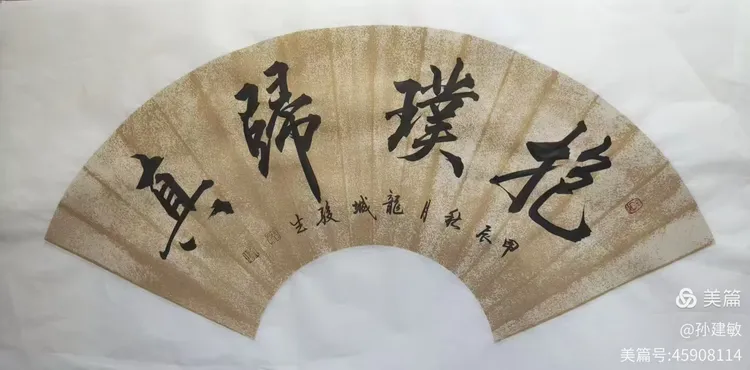 返璞歸真
甲辰秋月龍城生
美篇
@孙建敏
美篇号:45908114